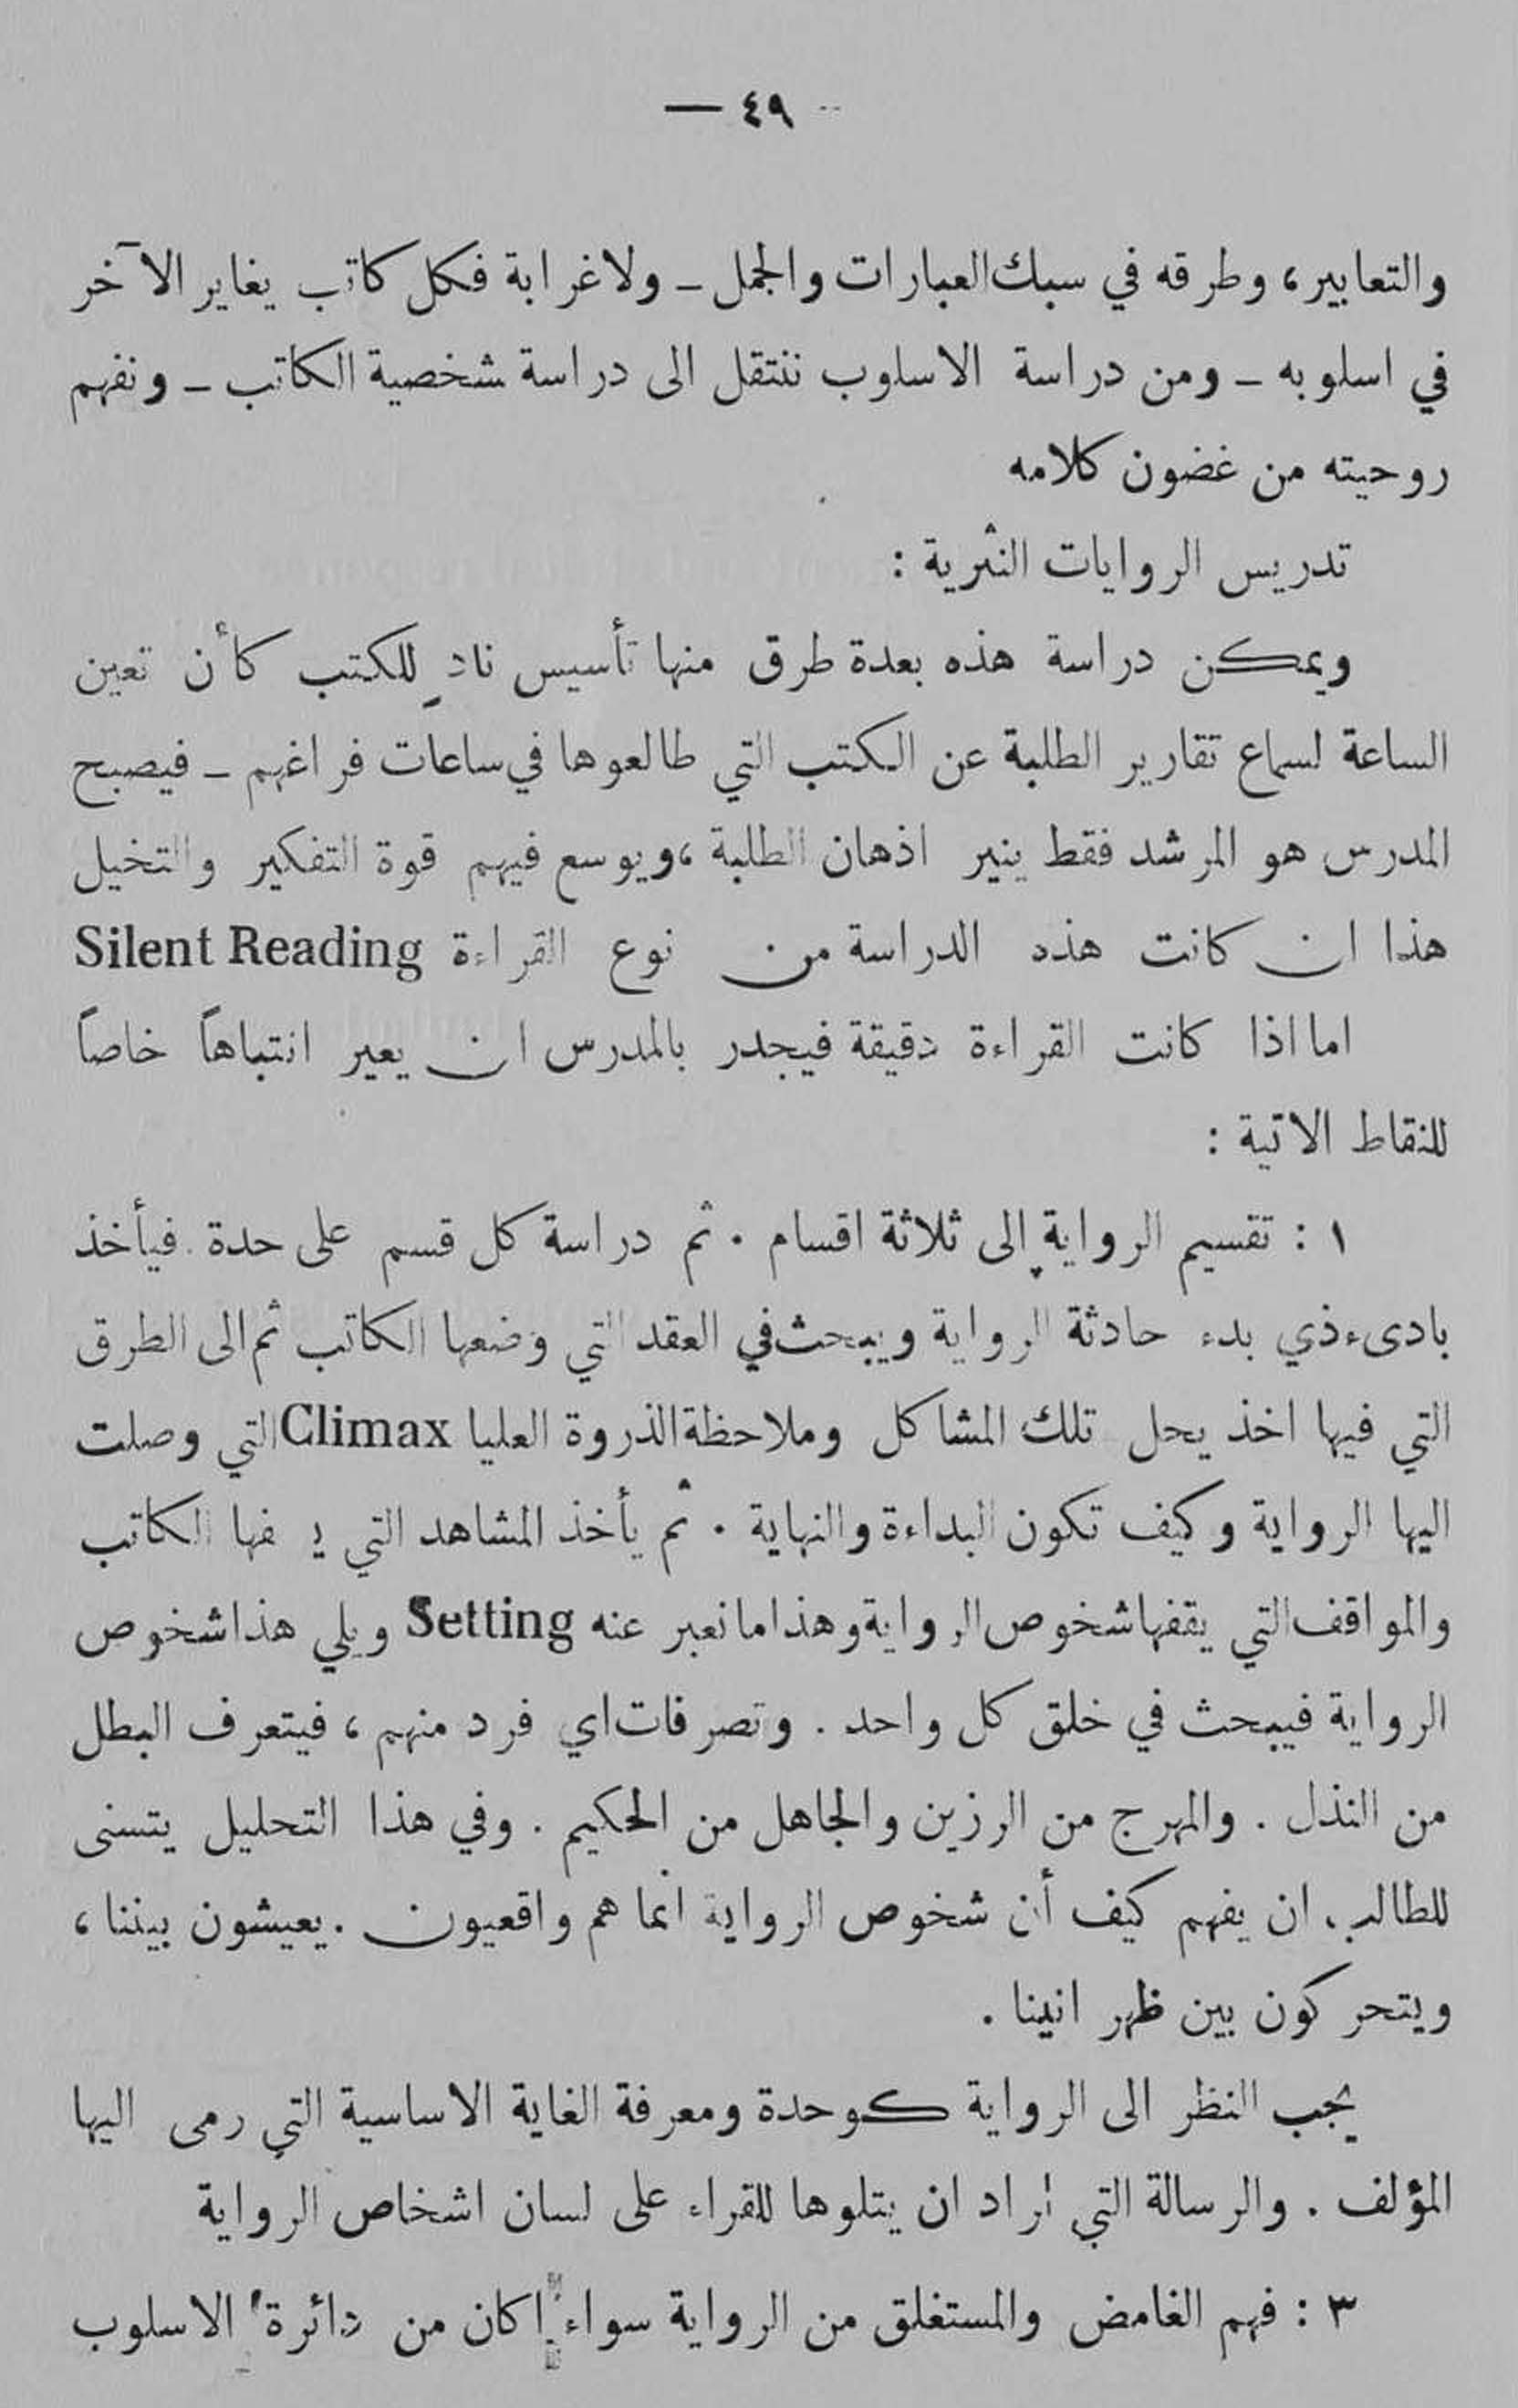 — ٤٩ —
والتعابير، وطرقه في سبك العبارات والجمل ـ ولا غرابة فكل كاتب يغاير الآخر
في اسلوبه ـ ومن دراسة الاسلوب ننتقل الى دراسة شخصية الكاتب ـ ونفهم
روحيته من غضون كلامه
تدريس الروايات النثرية :
ويمكن دراسة هذه بعدة طرق منها تأسيس نادٍ للكتب كأن تعين
الساعة لسماع تقارير الطلبة عن الكتب التي طالعوها في ساعات فراغهم ـ فيصبح
المدرس هو المرشد فقط ينير اذهان الطلبة ، ويوسع فيهم قوة التفكير والتخيل
هذا ان كانت هذه الدراسة من نوع القراءة Silent Reading
اما اذا كانت القراءة دقيقة فيجدر بالمدرس ان يعير انتباهاً خاصاً
للنقاط الاتية :
١ : تقسيم الرواية إلى ثلاثة اقسام . ثم دراسة كل قسم على حدة . فيأخذ
بادىء ذي بدء حادثة الرواية ويبحث في العقد التي وضعها الكاتب ثم الى الطرق
التي فيها اخذ يحل تلك المشاكل وملاحظة الذروة العليا Climax التي وصلت
اليها الرواية وكيف تكون البداءة والنهاية . ثم يأخذ المشاهد التي الكاتب
والمواقف التي يقفها شخوص الرواية وهذا ما نعبر عنه Setting ويلي هذا شخوص
الرواية فيبحث في خلق كل واحد . وتصرفات اي فرد منهم ، فيتعرف البطل
من النذل . والمهرج من الرزين والجاهل من الحكيم . وفي هذا التحليل يتسنى
للطالب ان يفهم كيف أن شخوص الرواية انما هم واقعيون . يعيشون بيننا ،
ويتحركون بين ظهر انينا .
يجب النظر الى الرواية كوحدة ومعرفة الغاية الاساسية التي رمى اليها
المؤلف . والرسالة التي اراد ان يتلوها للقراء على لسان اشخاص الرواية
٣ : فهم الغامض والمستغلق من الرواية سواء اكان من دائرة الاسلوب